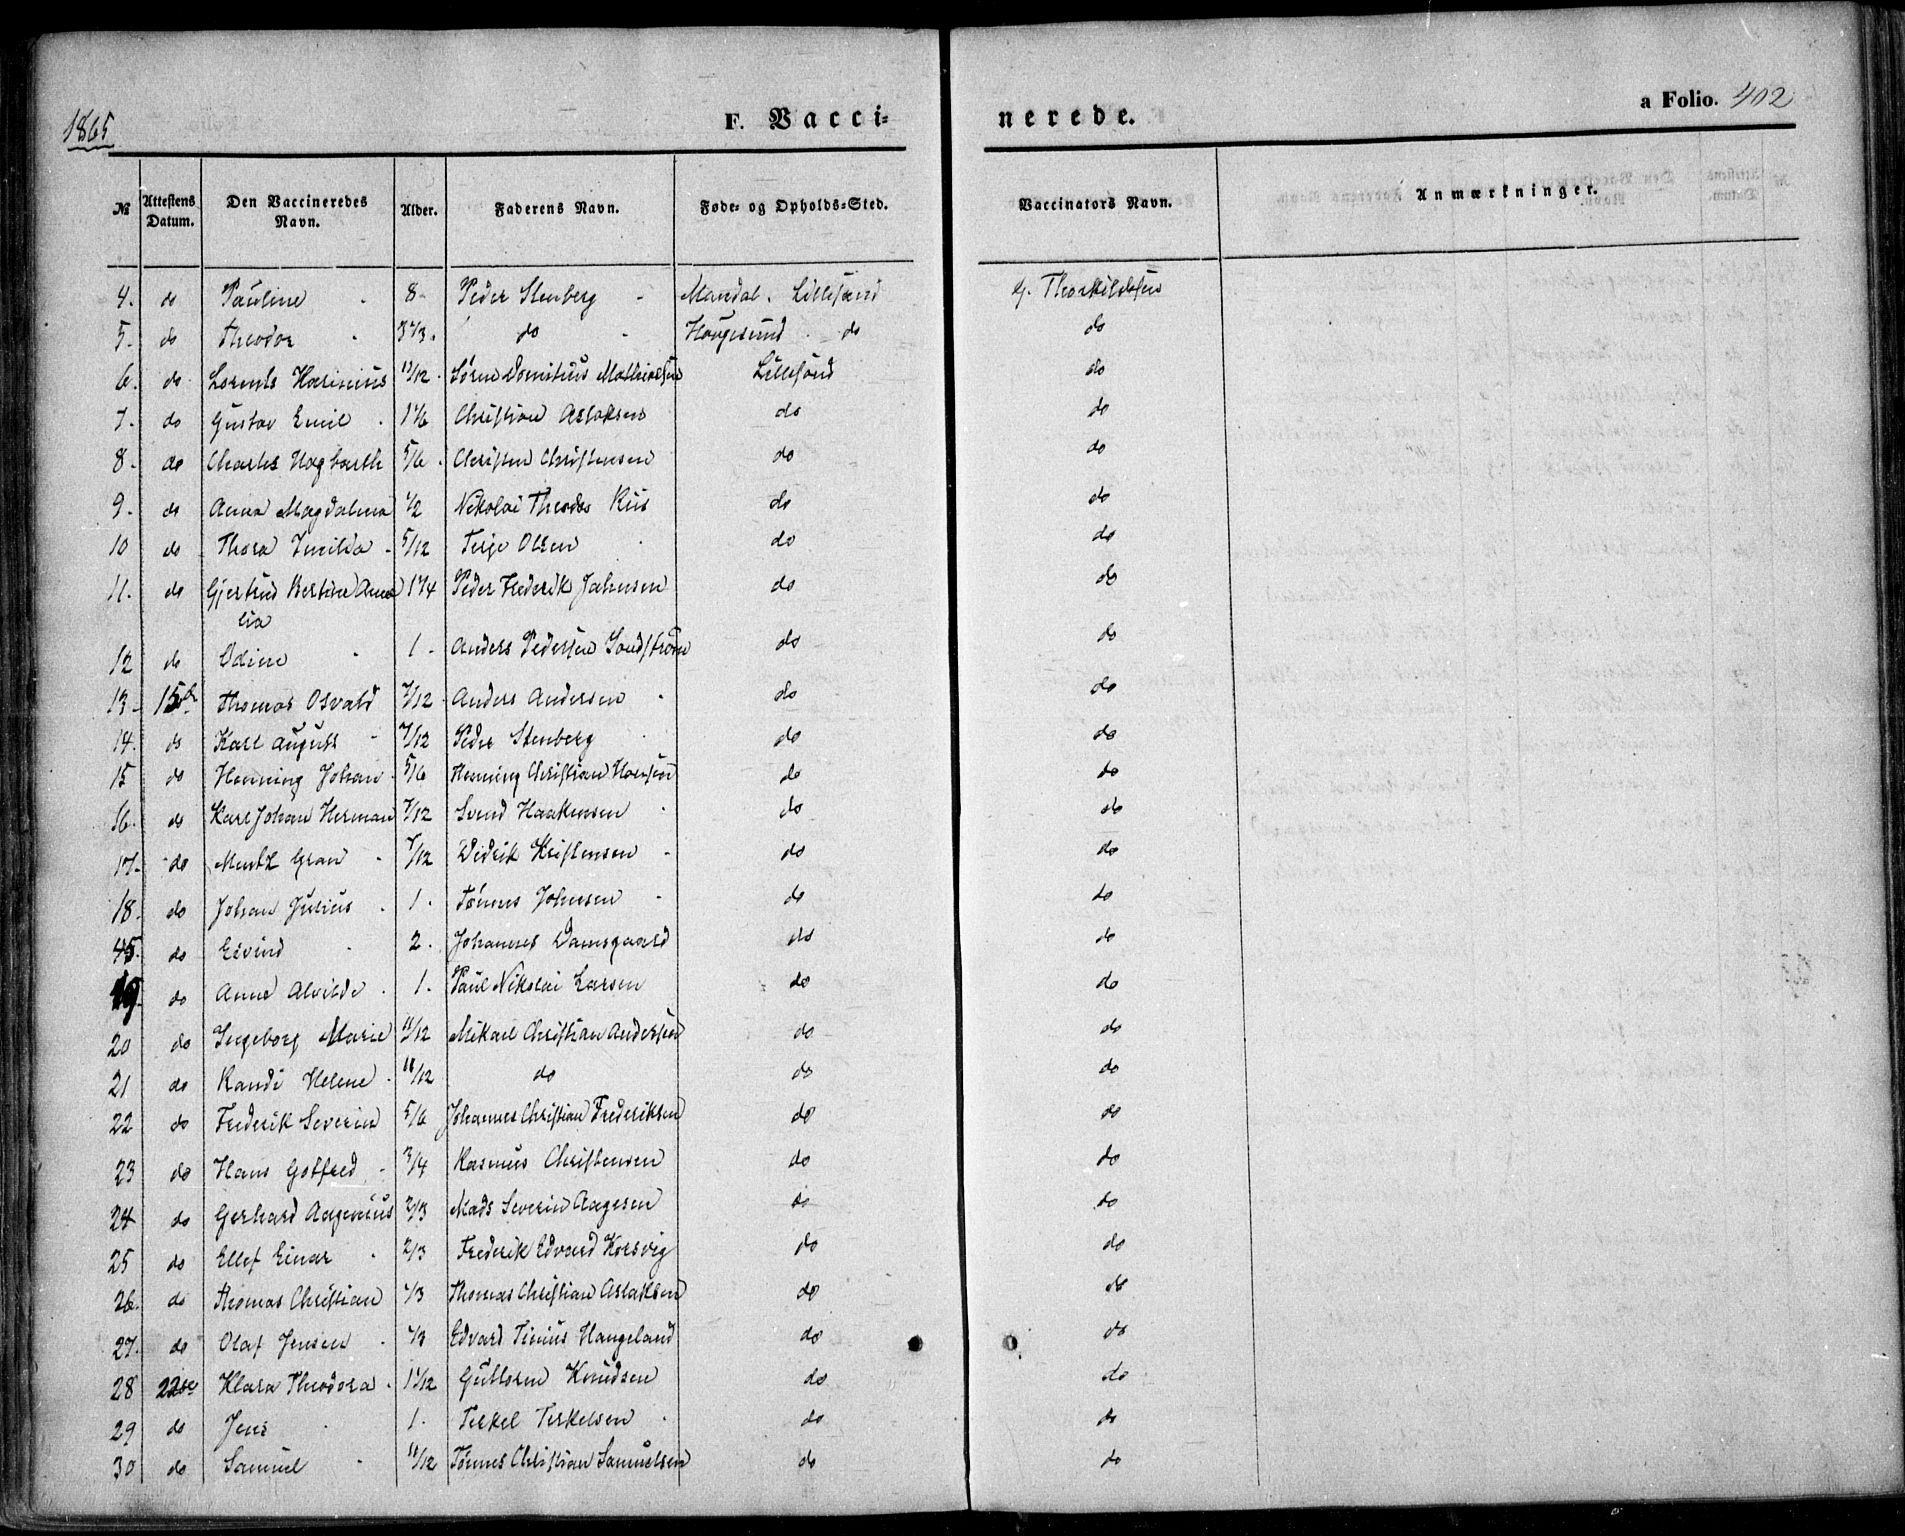 1865
F. Vacci-
nerede.
a Folio. 402
№ Attestens Datum. Den Vaccineredes Navn. Alder. Faderens Navn. Føde- og Opholds-Sted. Vaccinators Navn. Anmærkninger.
4. do Pauline 8 Peder Stenberg Mandal. Lillesand G. Thorkildsen
5. do Theodor do Haugesund. do do
6. do Lorents Harinius 11/12. Søren Domitius Mathiasen Lillesand do
7. do Gustav Emil 1 1/6 Christian Aslaksen do do
8. do Charles Hagbarth 5/6. Christen Christensen do do
9. do Anna Magdalena 1/2 Nikolai Theodor Riis do do
10 do Thora 5/12 Terje Olsen do do
11. do Gjertrud Bertine Ama 1 1/4 Peder Frederik Johnsen do do
lia
12 do Odine 1. Anders Pedersen Sandstrøm do do
13. 15de Thomas Osvald 7/12 Anders Andersen do do
14. do Karl August 7/12 Peder Stenberg do do
15 do Henning Johan 5/6 Henning Christian Hansen do do
16. do Karl Johan Herman 7/12 Svend Haakensen do do
17. do Mentz Gran 7/12 Didrik Kristensen do do
18. do Johan Julius 1. Tønnes Johnsen do do
45. do Eivind 2. Johannes Damsgaard do do
19. do Anne Alvilde 1. Paul Nikolai Larsen do do
20 do Ingeborg Marie 11/12 Mikael Christian Andersen do do
21 do Randi Helene 11/12 do do do
22 do Frederik Severin 5/6 Johannes Christian Frederiksen do do
23 do Hans Gotfred 3/4 Rasmus Christensen do do
24 do Gerhard Aagenius 2/3 Mads Severin Aagesen do do
25 do Ellef Einar 2/3 Frederik Edvard Korsvig do do
26. do Thomas Christian 1/3 Thomas Christian Aslaksen do do
27. do Olaf Jensen 1/3 Edvard Tinius Haugeland do do
28 22de Klara Theodora 1 1/12 Guttorm Knudsen do do
29 do Jens 1. Terkel Terkelsen do do
30 do Samuel 11/12 Tønnes Christian Samuelsen do do